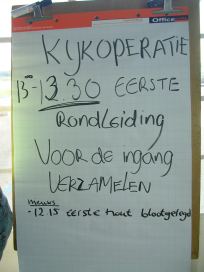 Office
KIJKOPERATIE
13-13.30 EERSTE
RONDLEIDING
VOOR de ingang
VERZAMELEN
nieuws
-12.15 eerste hout blootgelegd